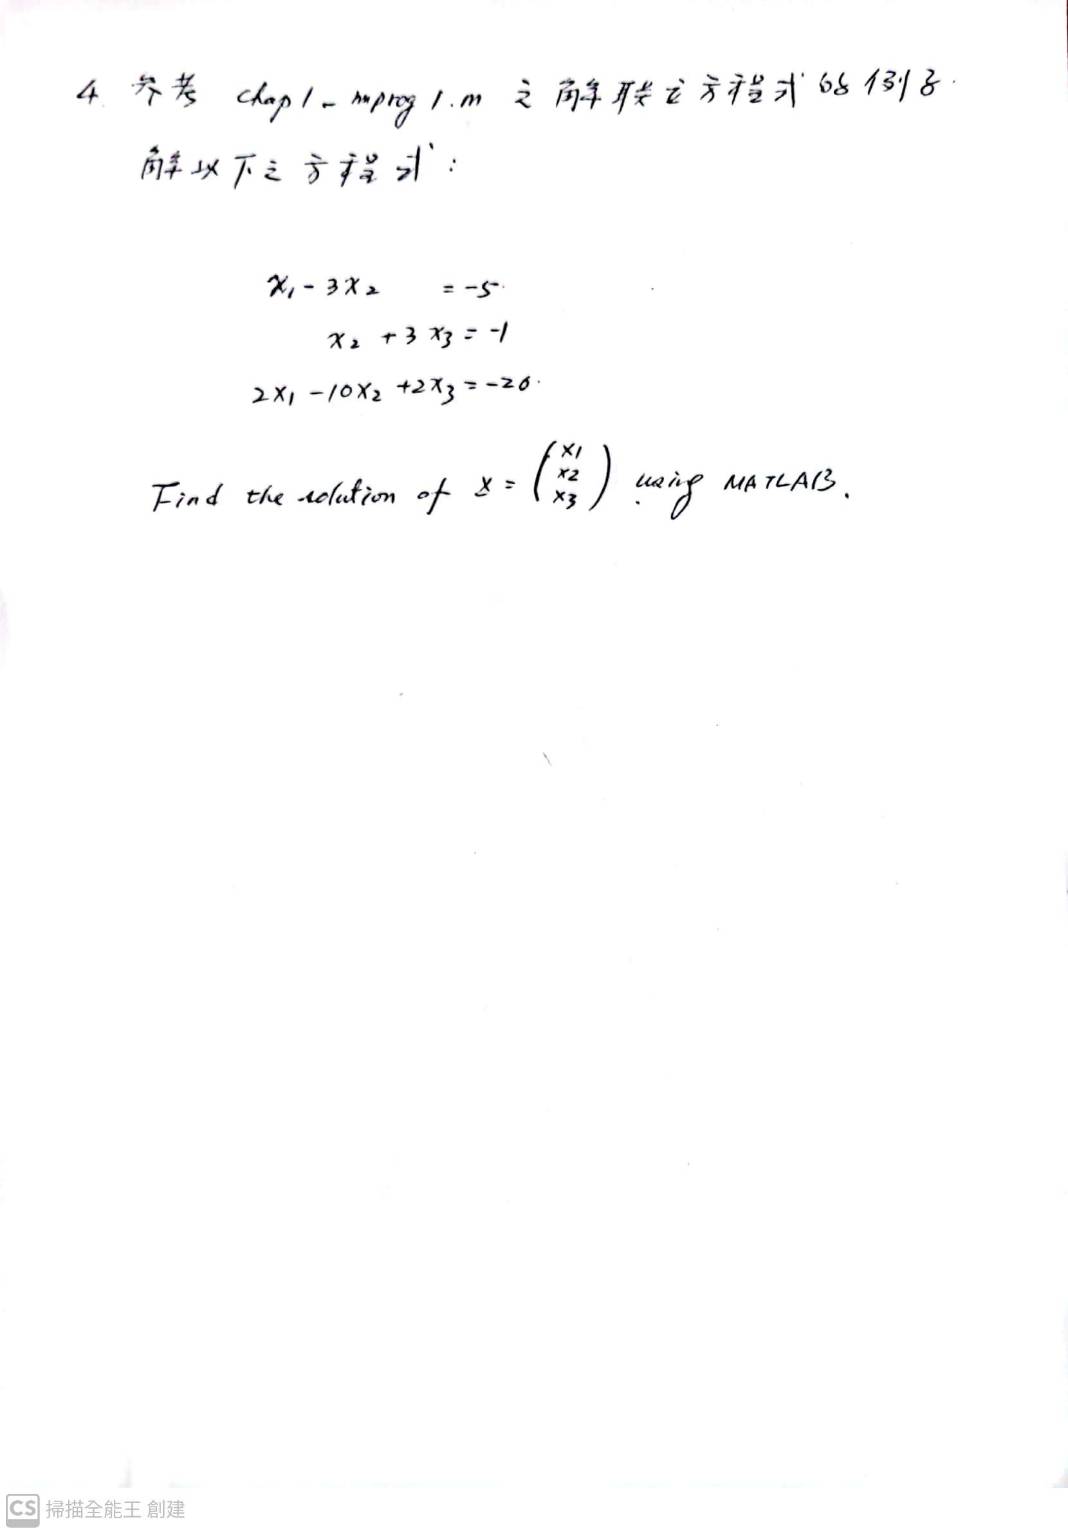 4. 參考 chap1-mprog1.m 之解联立方程式的例子.
解以下之方程式:
x₁ - 3x₂ = -5.
x₂ + 3x₃ = -1
2x₁ - 10x₂ + 2x₃ = -20.
Find the solution of x = (x1 x2 x3) using MATLAB.
CS 掃描全能王 創建